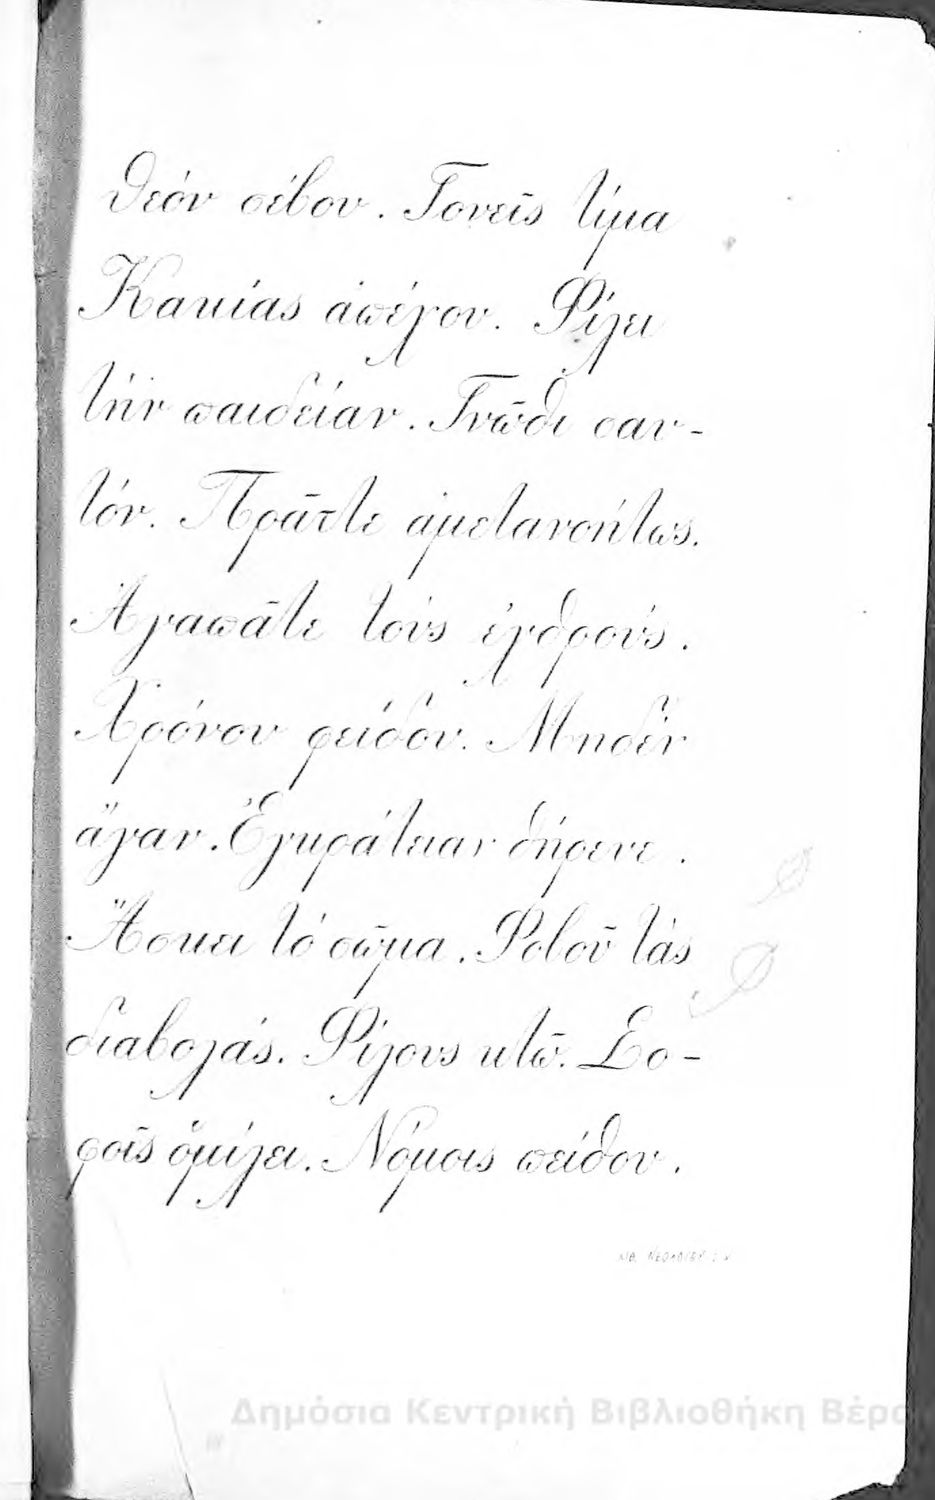 Θεόν σέβου. Γονεῖς τίμα
Κακίας ἀπέχου. Φίλει
τήν παιδείαν. Γνῶθι σαυ-
τόν. Πρᾶττε ἀμετανοήτως.
Ἀγαπᾶτε τούς ἐχθρούς.
Χρόνου φείδου. Μηδέν
ἄγαν. Ἐγκράτειαν θήρευε.
Ἄσκει τό σῶμα. Φοβοῦ τάς
διαβολάς. Φίλους κτῶ. Σο-
φοῖς ὁμίλει. Νόμοις πείθου.
Δημόσια Κεντρική Βιβλιοθήκη